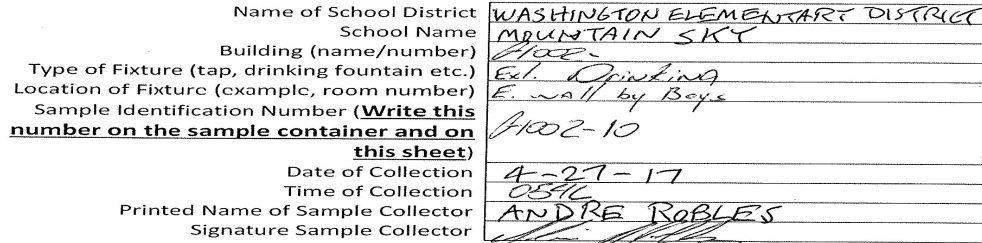 Name of School District WASHINGTON ELEMENTARY DISTRICT
School Name MOUNTAIN SKY
Building (name/number) A1002
Type of Fixture (tap, drinking fountain etc.) Ext. Drinking
Location of Fixture (example, room number) E. wall by Boys
Sample Identification Number (Write this
number on the sample container and on A1002-10
this sheet)
Date of Collection 4-27-17
Time of Collection
Printed Name of Sample Collector ANDRE ROBLES
Signature Sample Collector